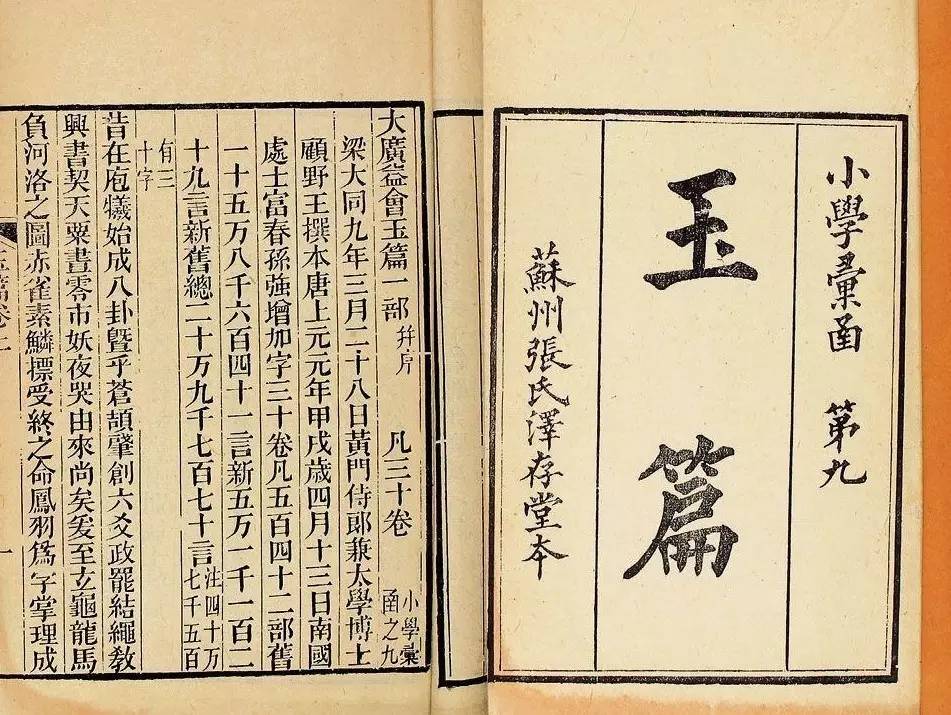 小學彙函 第九
玉篇
蘇州張氏澤存堂本
大廣益會玉篇一部 并序 凡三十卷 小學彙
函之九
梁大同九年三月二十八日黃門侍郎兼太學博士
顧野王撰本唐上元元年甲戌歲四月十三日南國
處士富春孫強增加字三十卷凡五百四十二部舊
一十五万八千六百四十一言新五万一千一百二
十九言新舊總二十万九千七百七十言 注四十万
七千五百
有三
十字
昔在庖犧始成八卦暨乎蒼頡肇創六爻政罷結繩教
興書契天粟晝零市妖夜哭由來尚矣爰至玄龜龍馬
負河洛之圖赤雀素鱗標受終之命鳳羽為字掌理成
玉篇卷上
一